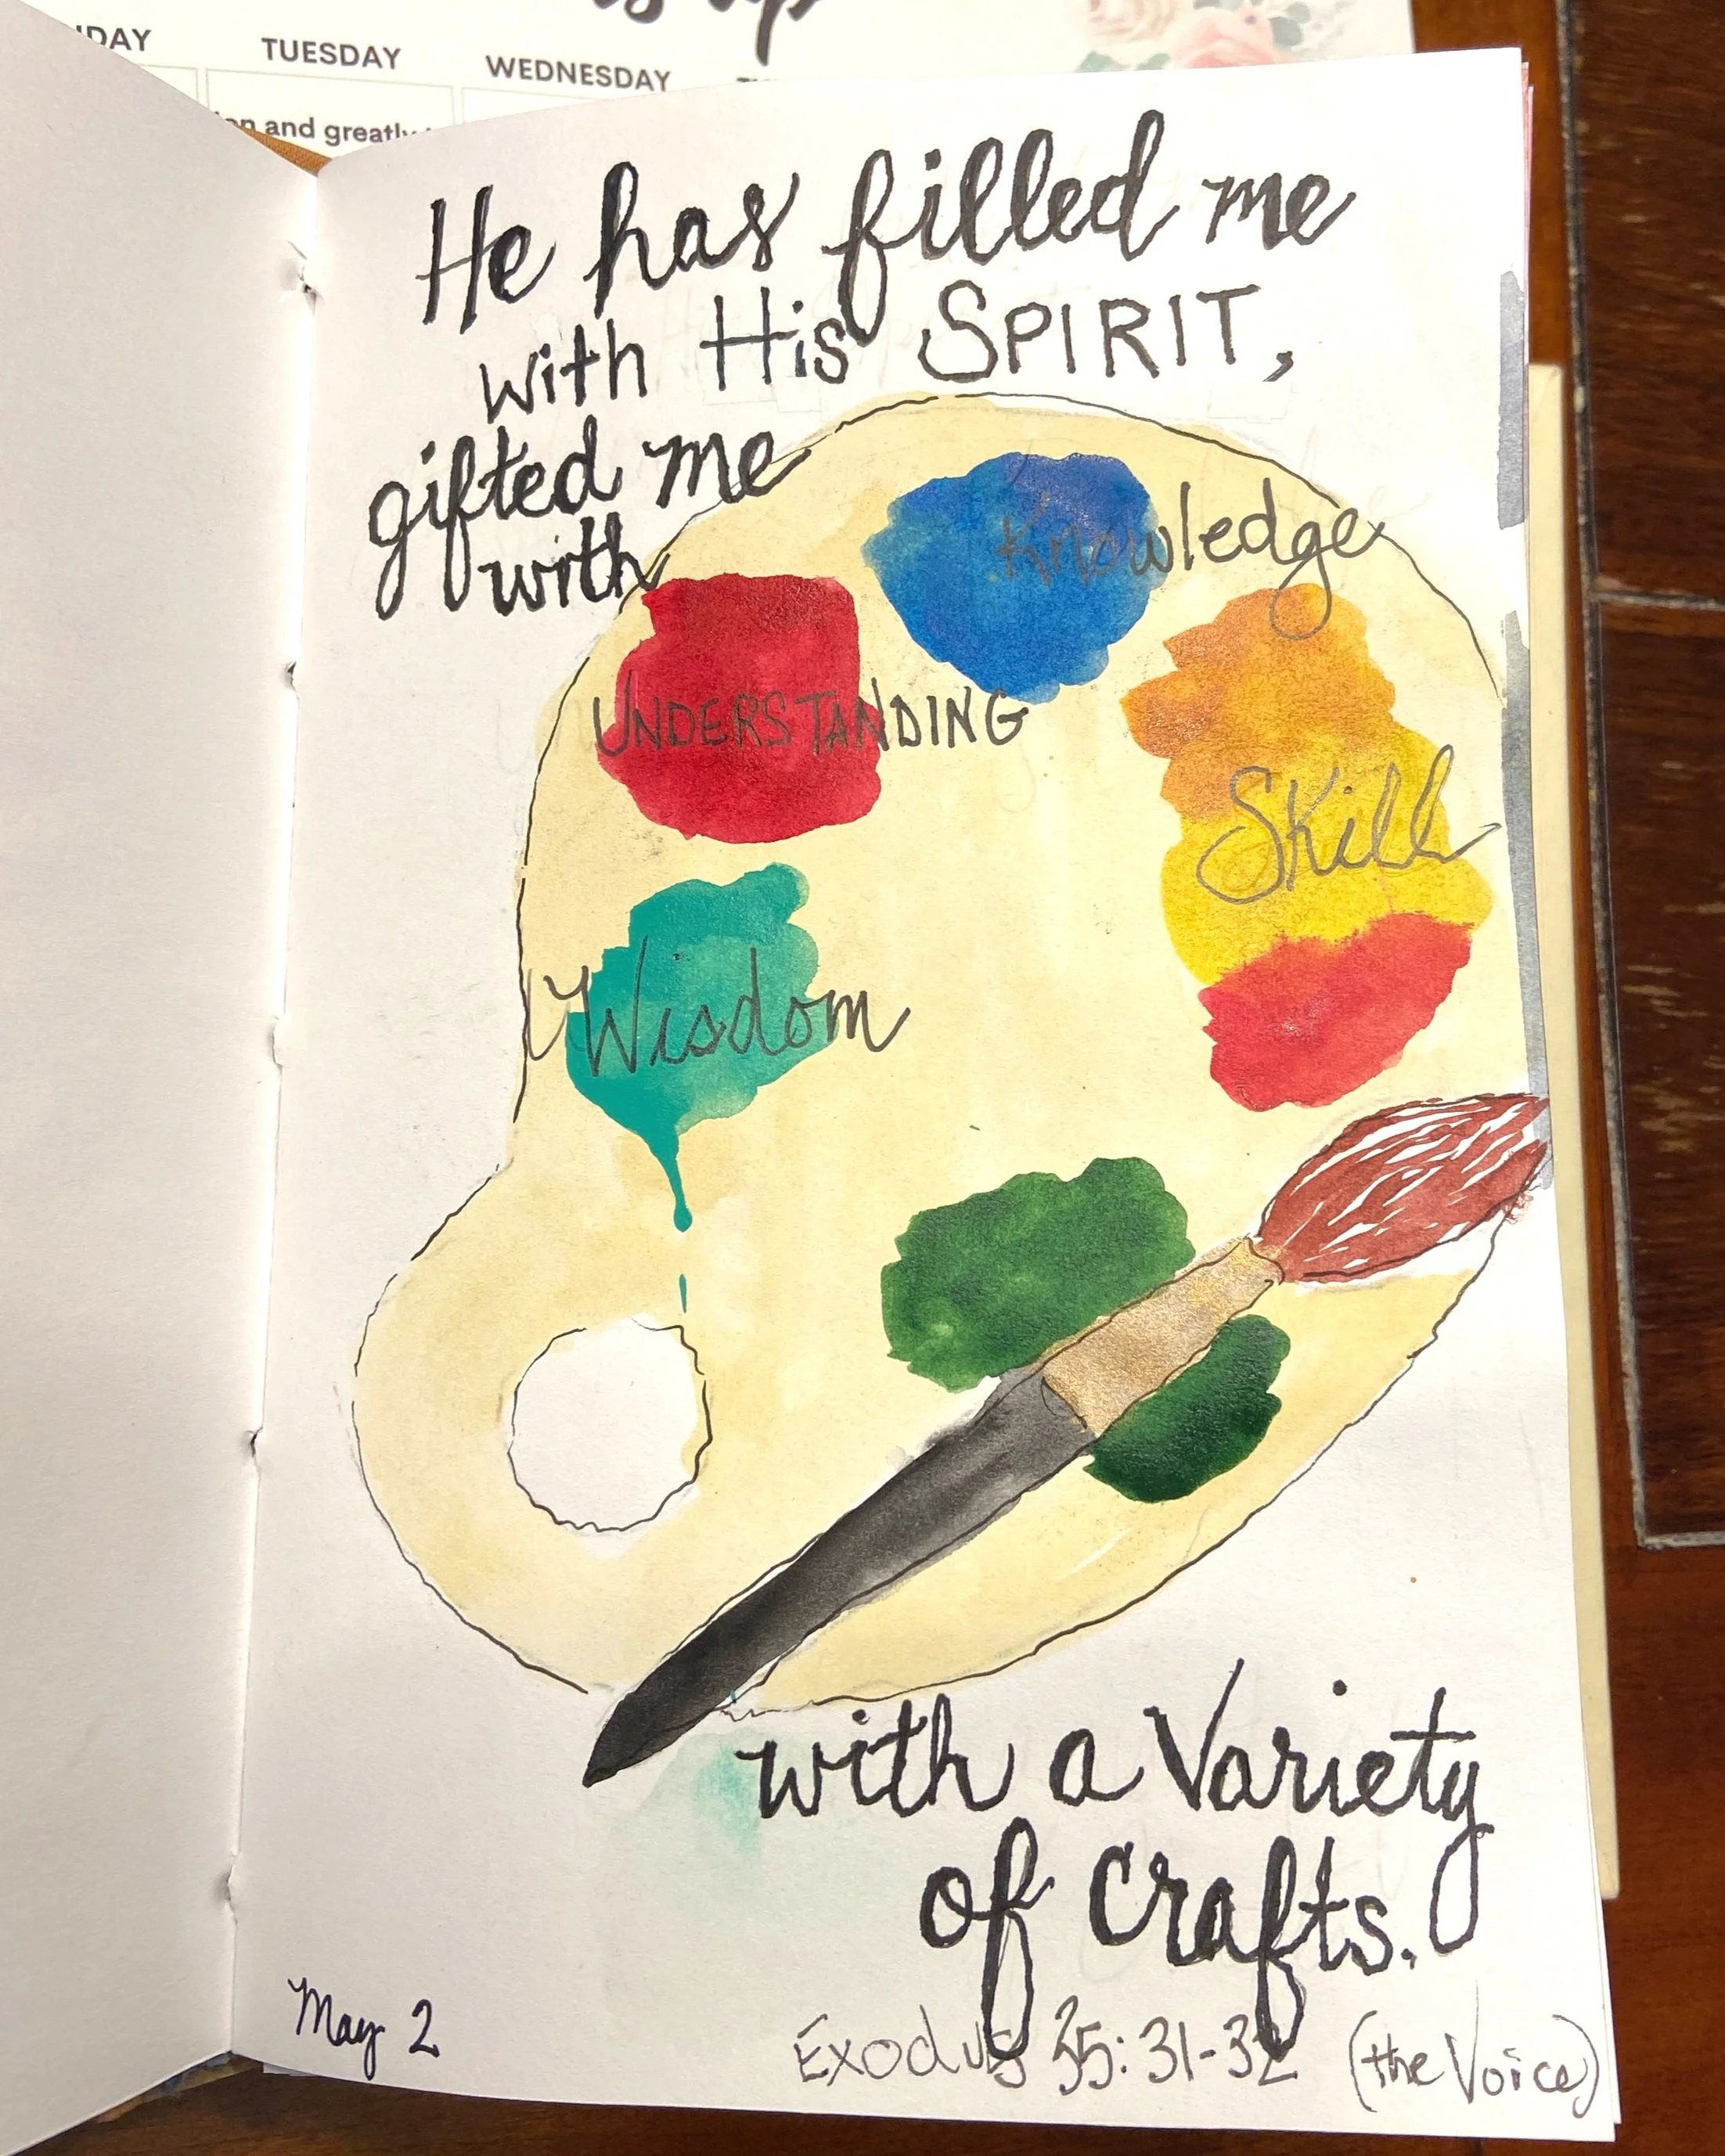 NDAY TUESDAY WEDNESDAY
and greatly
He has filled me
with His SPIRIT,
gifted me
with
Knowledge
UNDERSTANDING
Skill
Wisdom
with a Variety
of crafts.
May 2
Exodus 35:31-32 (the Voice)